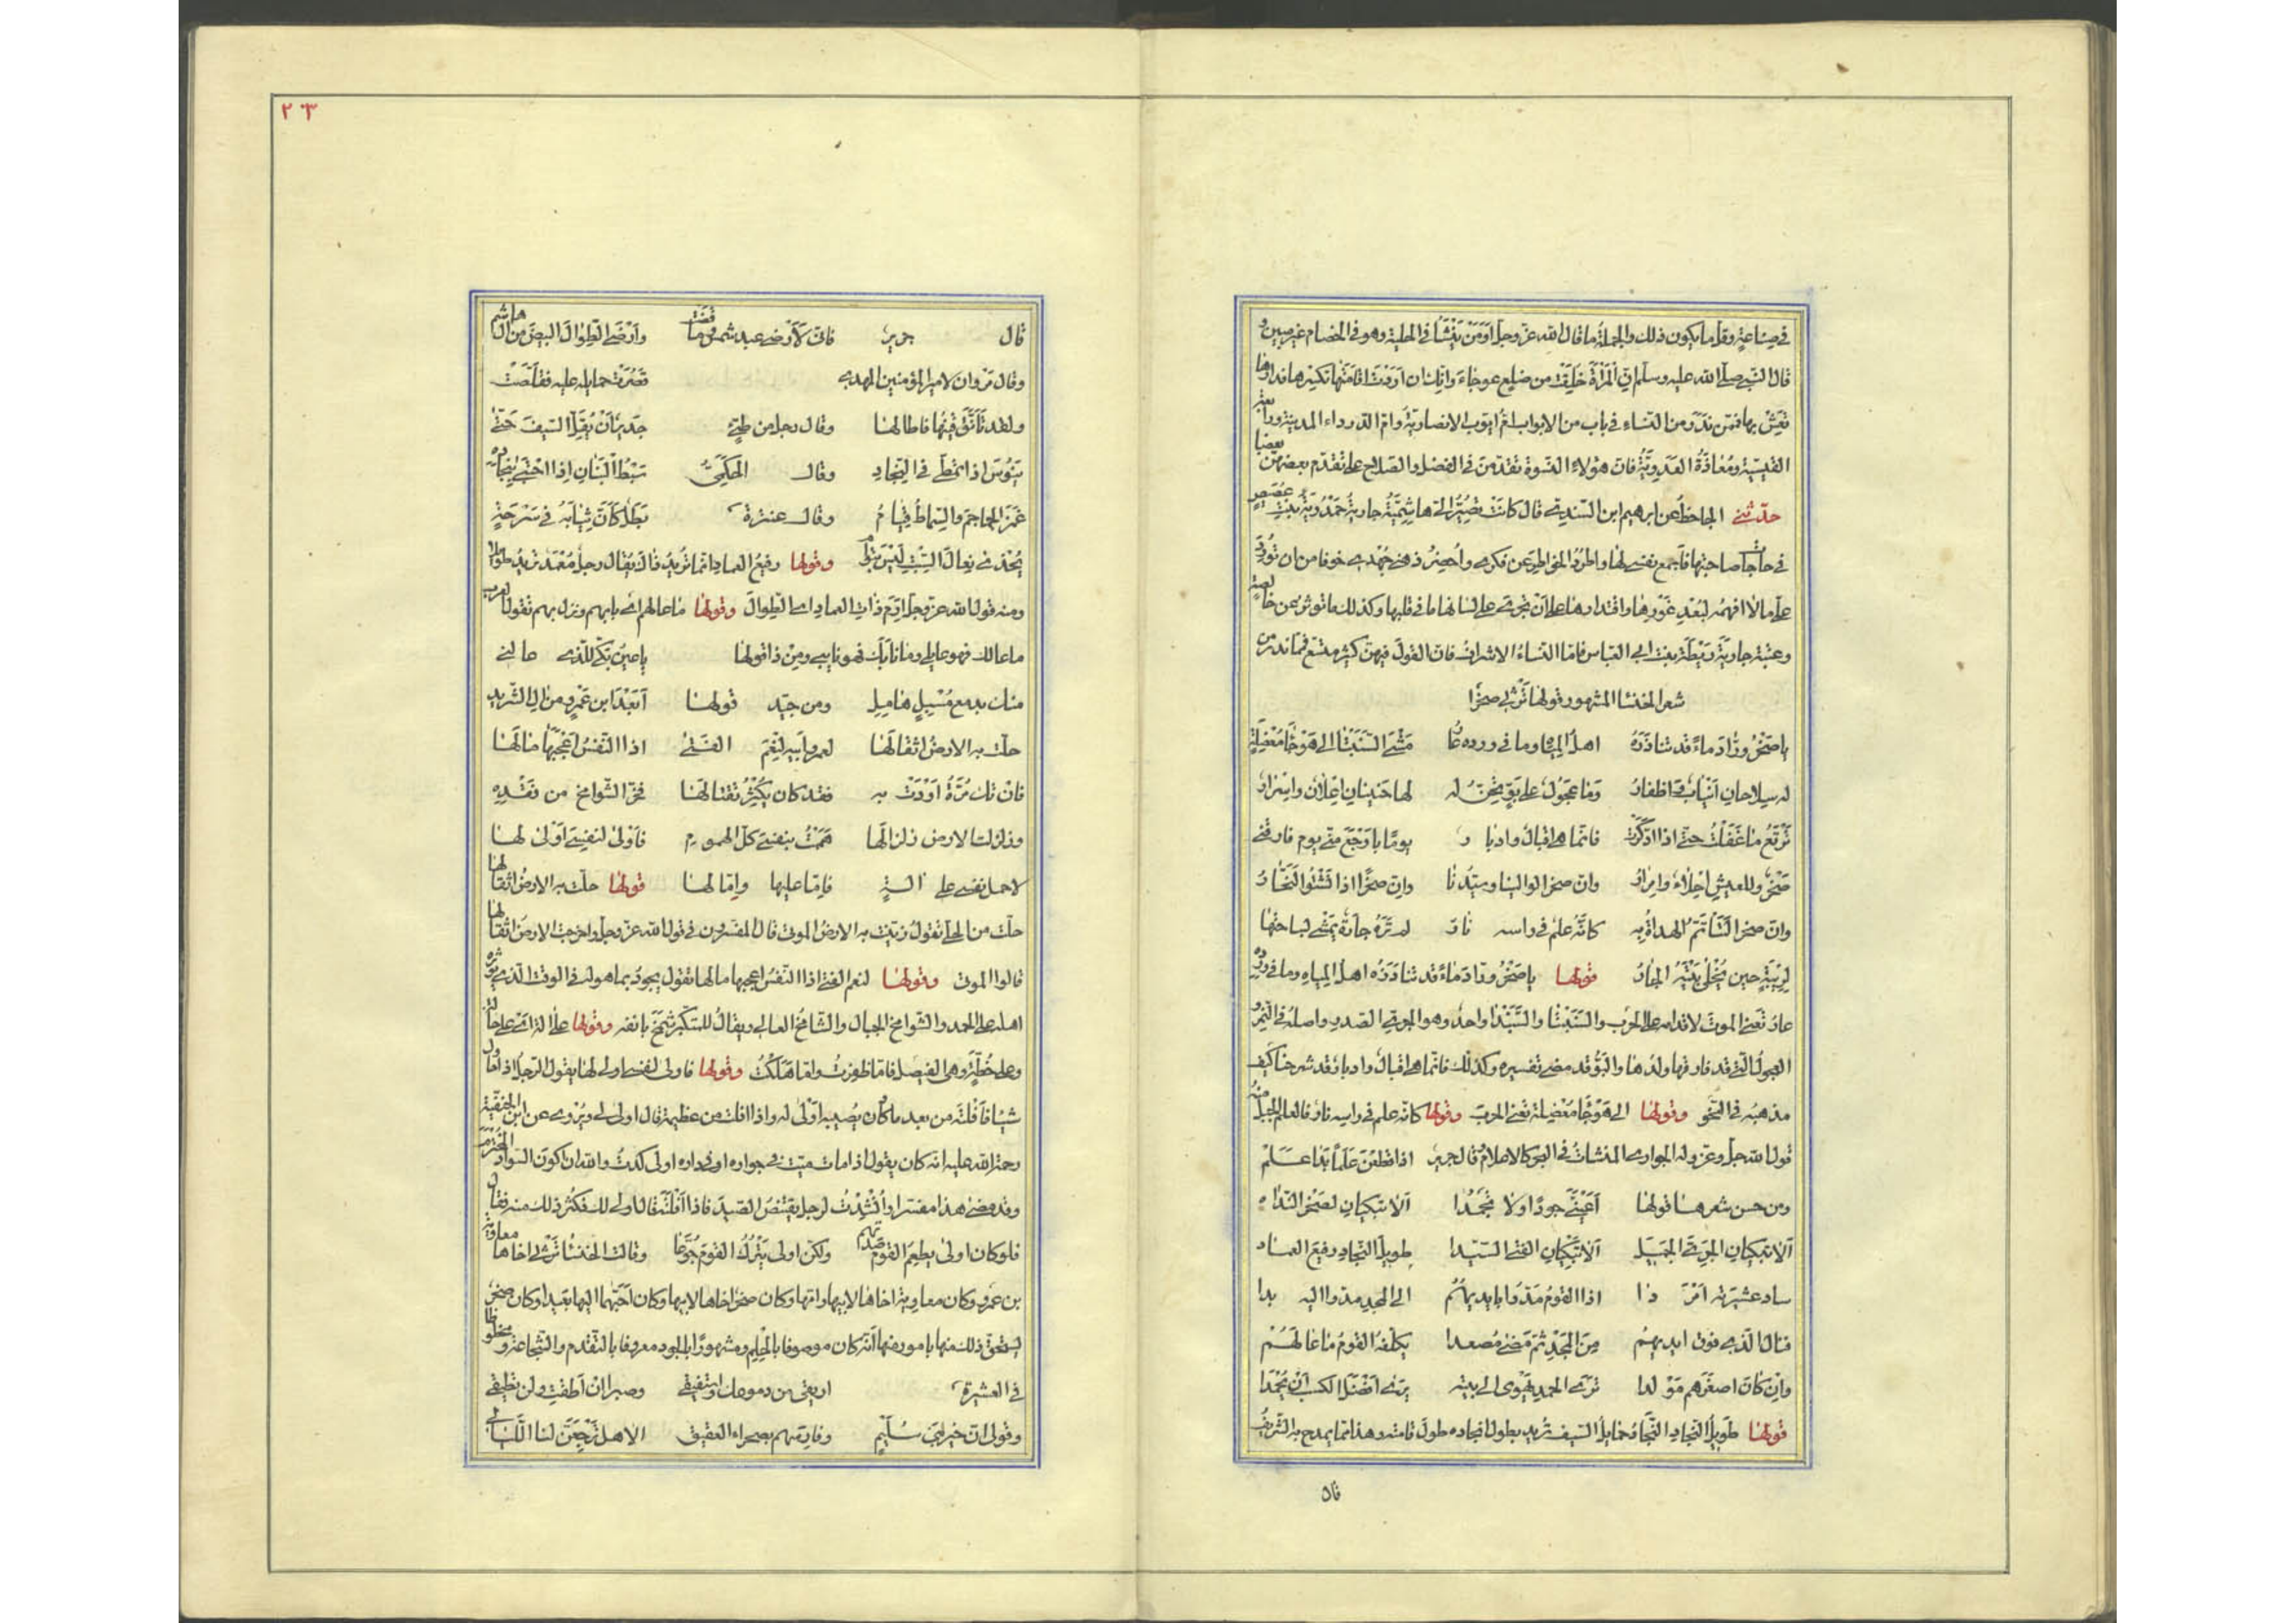 في صناعة وقلما يكون ذلك والجملة ما قال الله عز وجل اومن ينشأ في الحلية وهو في الخصام غير مبين و
قال النبي صلى الله عليه وسلم ان المرأة خلقت من ضلع عوجاء وانك ان اردت اقامتها تكسرها فدارها
تعش بها فمن ندر من النساء في باب من الابواب ام ايوب الانصارية وام الدرداء ورابعة
القيسية ومعاذة العدوية فان هؤلاء النسوة تقدمن في الفضل والصلاح على تقدم بعضهن بعضا
حدثني الجاحظ عن ابرهيم ابن السندي قال كانت تصير الي هاشمية جارية حمدونة بنت غضيض
في حاجات صاحبتها فاجمع نفسي لها واطرد الخواطر عن فكري واحضر ذهني جهدي خوفا من ان تورد
علي ما لا افهمه لبعد غورها واقتدارها على ان تجري على لسانها ما في قلبها وكذلك ما توثر عن خالصة
وعتبة جارية ريطة بنت ابي العباس فاما النساء الاشراف فان القول فيهن كثير متسع فما ندر من
شعر الخنساء المشهور قولها ترثي صخرا
يا صخر وراد ماء قد تناذره اهل المياه وما في ورده عار مشى السبنتا الى هوجا معضلة
له سلاحان انياب واظفار وما عجول على بو تحن له لها حنينان اعلان واسرار
ترتع ما غفلت حتى اذا ادكرت فانما هي اقبال وادبار يوما باوجع مني يوم فارقني
صخر وللعيش احلاء وامرار وان صخرا لوالينا وسيدنا وان صخرا اذا نشتو لنحار
وان صخرا لتاتم الهداة به كانه علم في راسه نار لم تره جارة يمشي لساحتها
لريبة حين يخلي بيته الجار قولها يا صخر وراد ماء قد تناذره اهل المياه وما في ورده
عار تعني الموت لاقدامه على الحرب والسبنتا والسبندا واحد وهو الجري الصدر واصله في النمر و
العجول التي قد فارقها ولدها والبو قد مضى تفسيره وكذلك فانما هي اقبال وادبار قد شرحنا كيف
مذهبه في النحو وقولها الى هوجا معضلة تعني الحرب وقولها كانه علم في راسه نار فالعلم الجبل منه
قول الله جل وعز وله الجواري المنشات في البحر كالاعلام قال جرير اذا قطعن علما بدا علم
ومن حسن شعرها قولها اعيني جودا ولا تجمدا الا تبكيان لصخر الندا
الا تبكيان الجري الجميل الا تبكيان الفتى السيدا طويل النجاد رفيع العماد
ساد عشيرته امردا اذا القوم مدوا بايديهم الى المجد مد اليه يدا
فنال الذي فوق ايديهم من المجد ثم مضى مصعدا يكلفه القوم ما عالهم
وان كان اصغرهم مولدا ترى الحمد يهوى الى بيته يرى افضل الكسب ان يحمدا
قولها طويل النجاد النجاد حمايل السيف تريد بطول نجاده طول قامته وهذا مما يمدح به الشريف
قال
٢٣
قال جرير فاني لارضى عبد شمس وما قضت وارضى الطوال البيض من ال هاشم
وقال مروان لامير المؤمنين المهدي قصرت حمايله عليه فقلصت
ولقد تانق قينها فاطالها وقال رجل من طيئ جدير ان يقل السيف حتى
ينوس اذا تمطى في النجاد وقال الحكمي سبط البنان اذا احتبى بنجاده
غمز الجماجم والسماط قيام وقال عنترة بطل كان ثيابه في سرحة
يحذى نعال السبت ليس بتوأم وقولها رفيع العماد انما تريد ذاك يقال رجل معمد تريد طويلا
ومنه قول الله عز وجل ارم ذات العماد اي الطوال وقولها ما عالهم اي نابهم ونزل بهم تقول العرب
ما عالك فهو عايلي وما نابك فهو نايبي ومن ذا قولها يا عين بكي للذي عالني
منك بدمع مسبل هامل ومن جيد قولها ابعد ابن عمرو من ال الشريد
حلت به الارض اثقالها لعمر ابيه لنعم الفتى اذا النفس اعجبها مالها
فان تك مرة اودت به فقد كان يكثر تقتالها فخر الشوامخ من فقده
وزلزلت الارض زلزالها هممت بنفسي كل الهموم فاولى لنفسي اولى لها
لاحمل نفسي على الة فاما عليها واما لها قولها حلت به الارض اثقالها
حلت من الحلي تقول زينت به الارض الموتى قال المفسرون في قول الله عز وجل واخرجت الارض اثقالها
قالوا الموتى وقولها لنعم الفتى اذا النفس اعجبها مالها تقول يجود بما هو له في الوقت الذي يوثره
اهله على الحمد والشوامخ الجبال والشامخ العالي ويقال للمتكبر شمخ بانفه وقولها على الة اي على حالة
وعلى خطة وهي الفيصل فاما ظفرت واما هلكت وقولها فاولى لنفسي اولى لها يقول الرجل اذا حاول
شيئا فافلته من بعد ما كان يصيبه اولى له واذا افلت من عظيمة قال اولى لي ويروى عن ابن الحنفية
رحمة الله عليه انه كان يقول اذا مات ميت في جواره او في داره اولى كدت والله ان اكون السواد المخترم
وقد مضى هذا مفسرا وانشدت لرجل يقتنص الصيد فاذا افلته قال اولى لك فكثر ذلك منه فقال
فلو كان اولى يطعم القوم صدتهم ولكن اولى يترك القوم جوعا وقالت الخنساء ترثي اخاها معاوية
بن عمرو وكان معاوية اخاها لابيها وامها وكان صخر اخاها لابيها وكان احبهما اليها بعيدا وكان صخر
يستحق ذلك منها بامور منها انه كان موصوفا بالحلم ومشهورا بالجود معروفا بالتقدم والشجاعة ومحظوظا
في العشيرة اريقي من دموعك واستفيقي وصبرا ان اطقت ولن تطيقي
وقولي ان خير بني سليم وفارسهم بصحراء العقيق الا هل ترجعن لنا الليالي